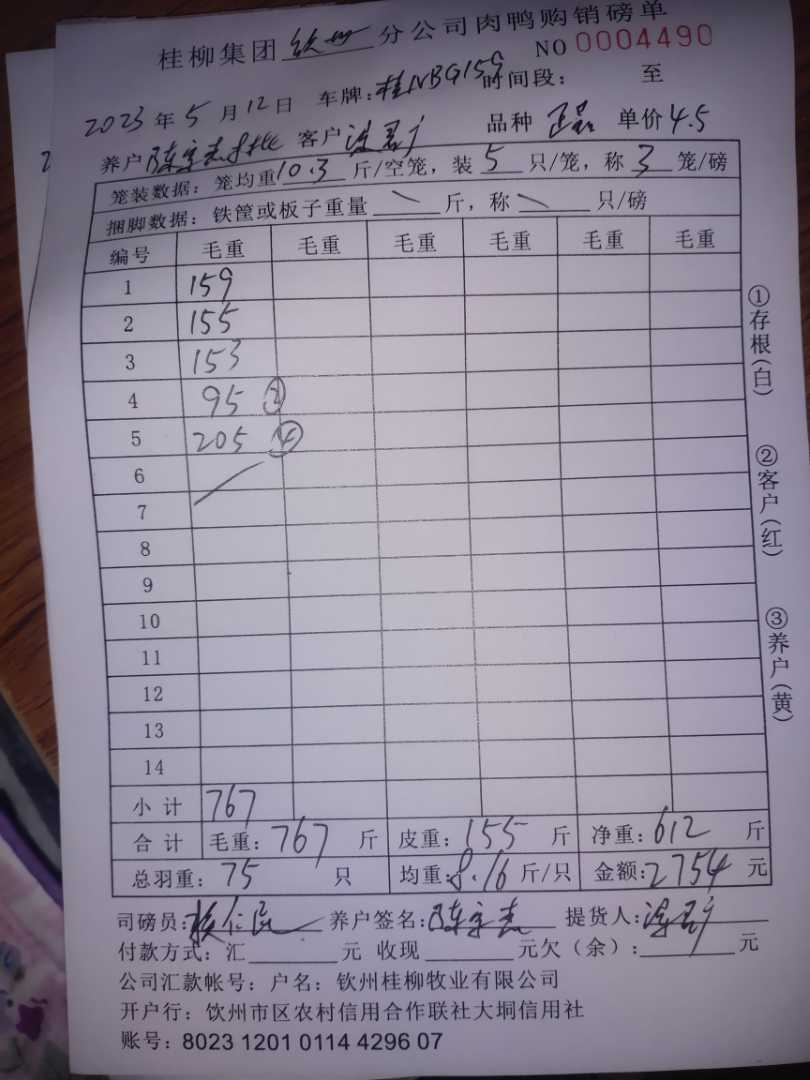 桂柳集团 钦州 分公司肉鸭购销磅单
NO 0004490
2023 年 5 月 12 日 车牌：桂NBG159 时间段： 至
养户 陈宗志 客户 品种 单价 4.5
笼装数据：笼均重 10.3 斤/空笼，装 5 只/笼，称 3 笼/磅
捆脚数据：铁筐或板子重量 \ 斤，称 \ 只/磅
编号 毛重 毛重 毛重 毛重 毛重 毛重
1 159
2 155
3 153
4 95 ②
5 205 ④
6
7
8
9
10
11
12
13
14
小计 767
合计 毛重：767 斤 皮重：155 斤 净重：612 斤
总羽重：75 只 均重：8.16 斤/只 金额：2754 元
司磅员： 养户签名：陈宗志 提货人：
付款方式：汇 元 收现 元欠（余）： 元
公司汇款帐号：户名：钦州桂柳牧业有限公司
开户行：饮州市区农村信用合作联社大垌信用社
账号：8023 1201 0114 4296 07
①存根（白）
②客户（红）
③养户（黄）